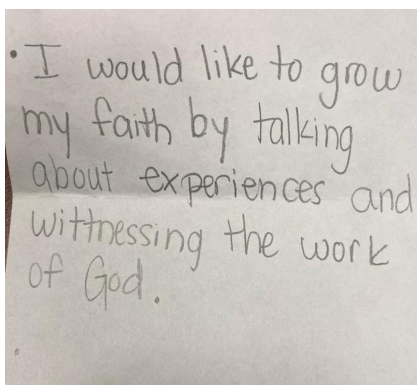 • I would like to grow
my faith by talking
about experiences and
wittnessing the work
of God.